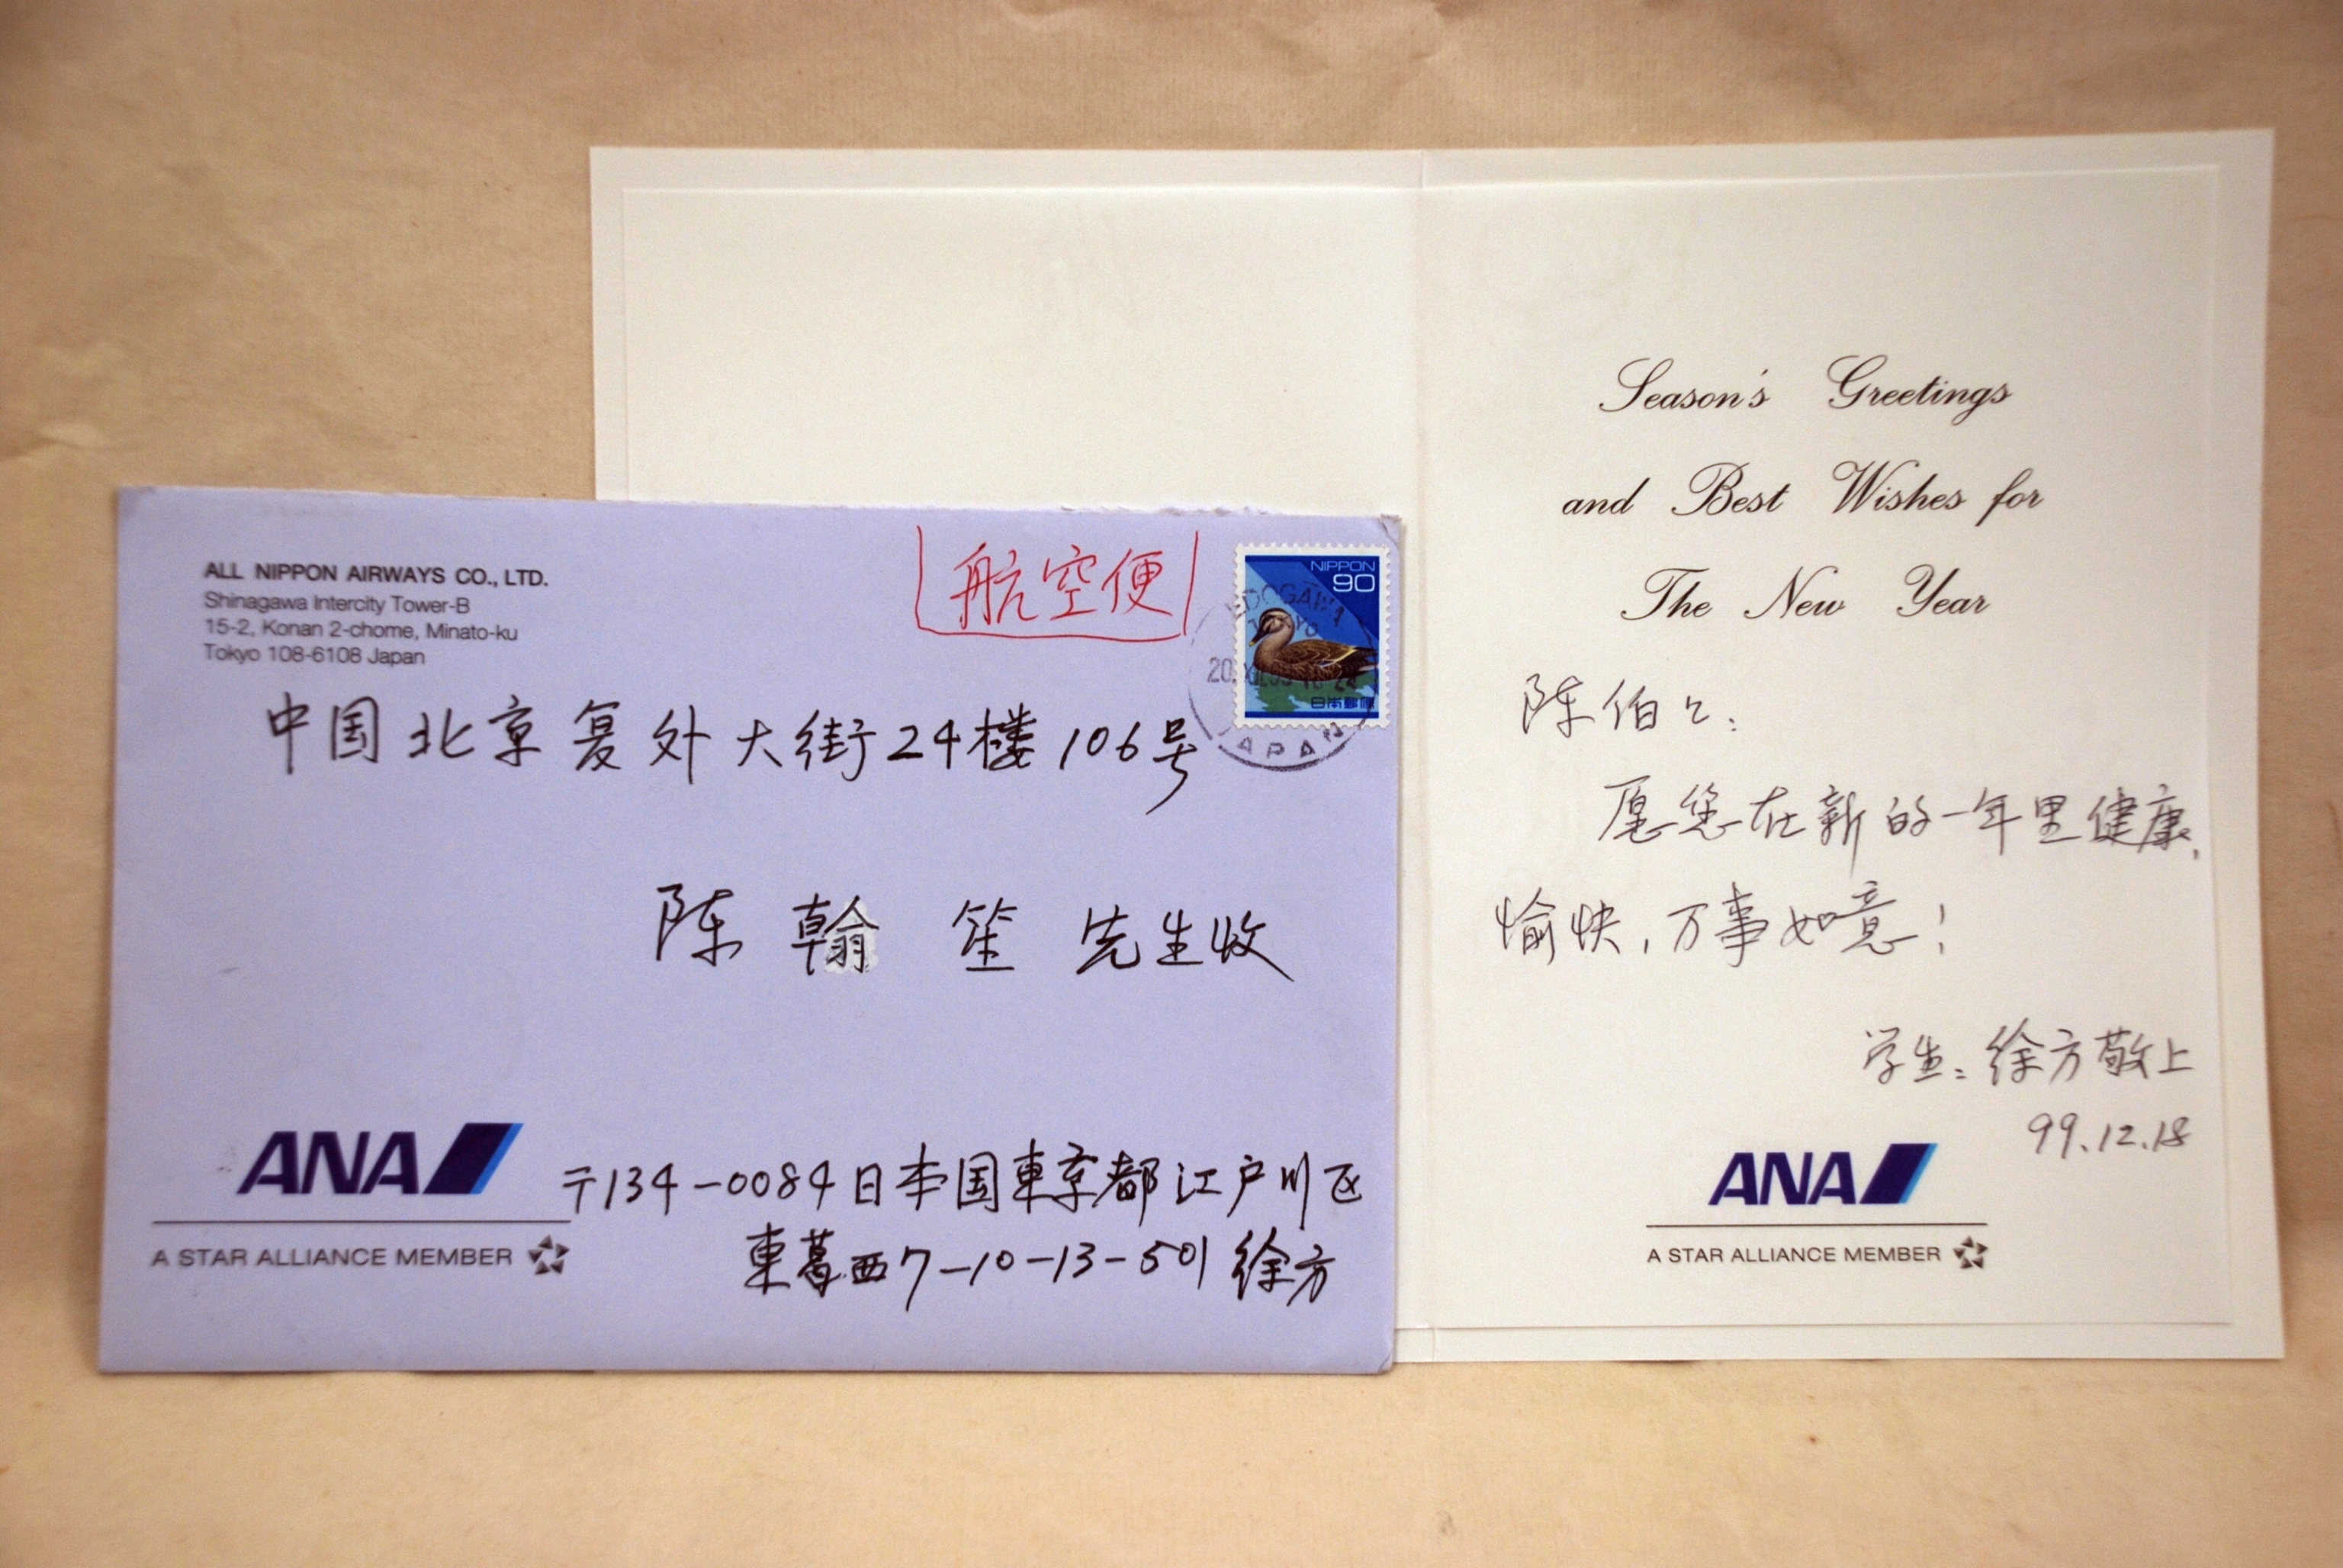 ALL NIPPON AIRWAYS CO., LTD.
Shinagawa Intercity Tower-B
15-2, Konan 2-chome, Minato-ku
Tokyo 108-6108 Japan
航空便
NIPPON
90
日本郵便
EDOGAWA
TOKYO
JAPAN
中国北京复外大街24楼106号
陈翰笙先生收
ANA
A STAR ALLIANCE MEMBER
〒134-0084日本国東京都江戸川区
東葛西7-10-13-501徐方
Season's Greetings
and Best Wishes for
The New Year
陈伯々:
愿您在新的一年里健康,
愉快,万事如意!
学生:徐方敬上
99.12.18
ANA
A STAR ALLIANCE MEMBER